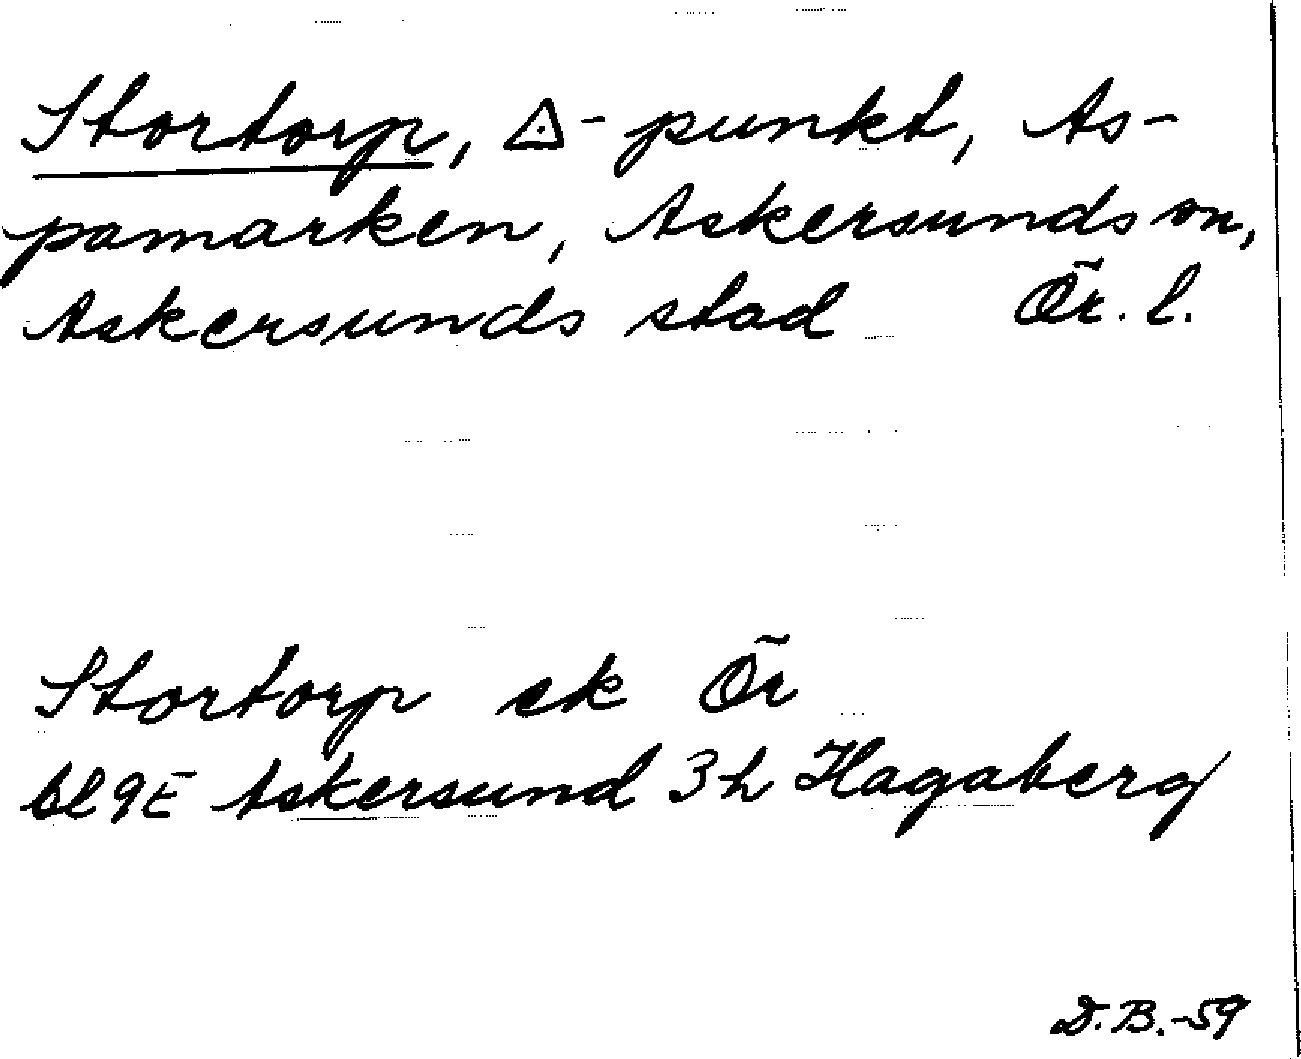 Stortorp, △-punkt, As-
pamarken, Askersunds on,
Askersunds stad Ör. l.
Stortorp ek Ör
bl 9E Askersund 3h Hagaberg
D.B.-59